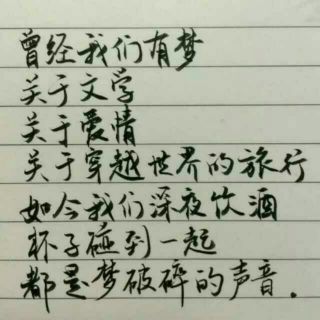 曾经我们有梦
关于文学
关于爱情
关于穿越世界的旅行
如今我们深夜饮酒
杯子碰到一起
都是梦破碎的声音.